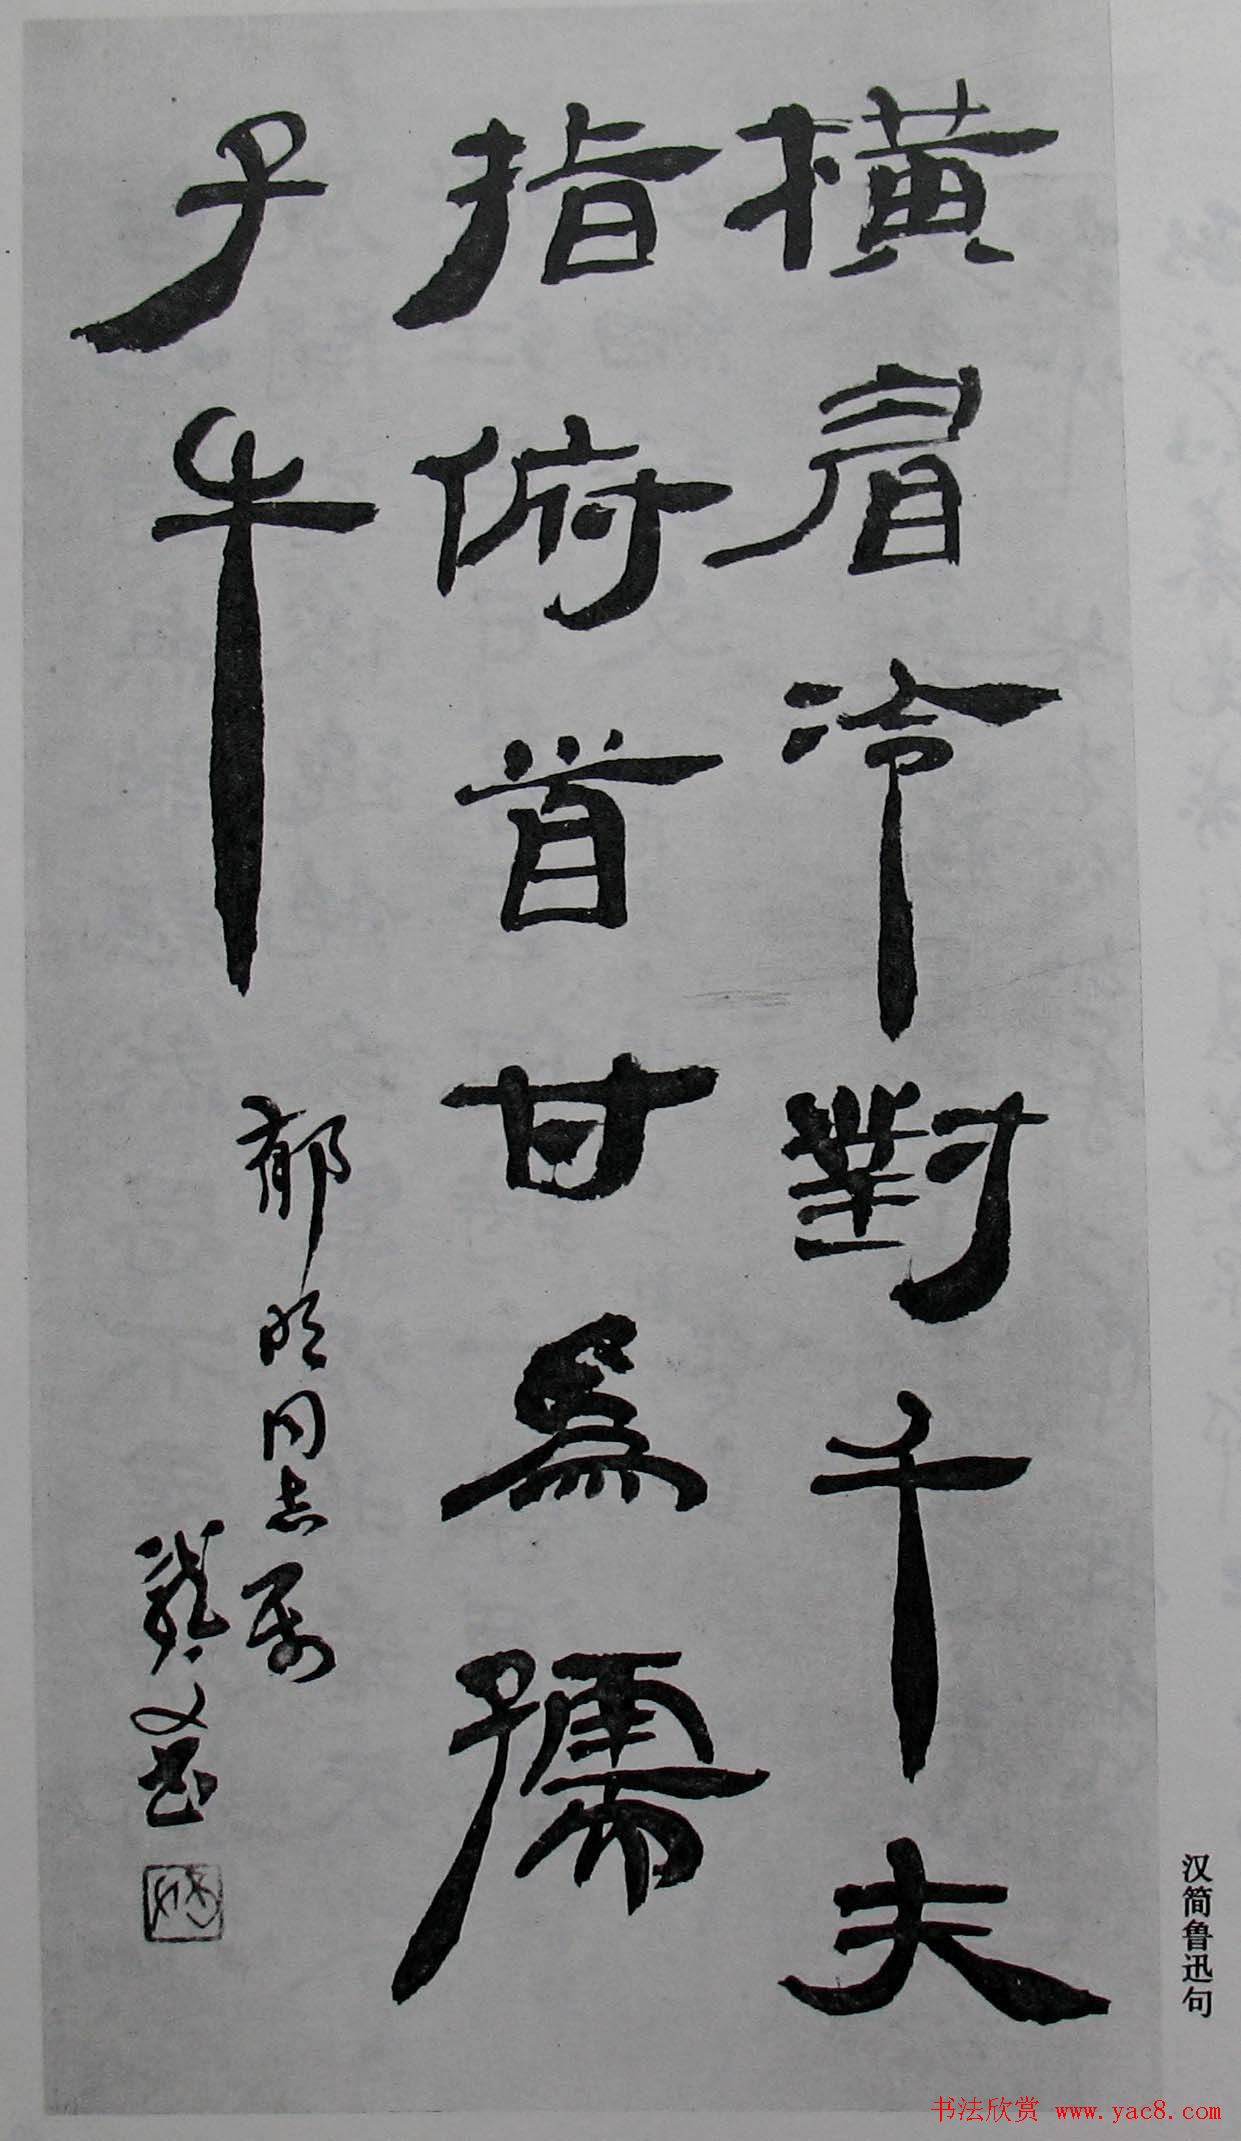 橫眉冷對千夫
指俯首甘為孺
子牛
郁明同志属
龚文书
汉简鲁迅句
书法欣赏 www.yac8.com